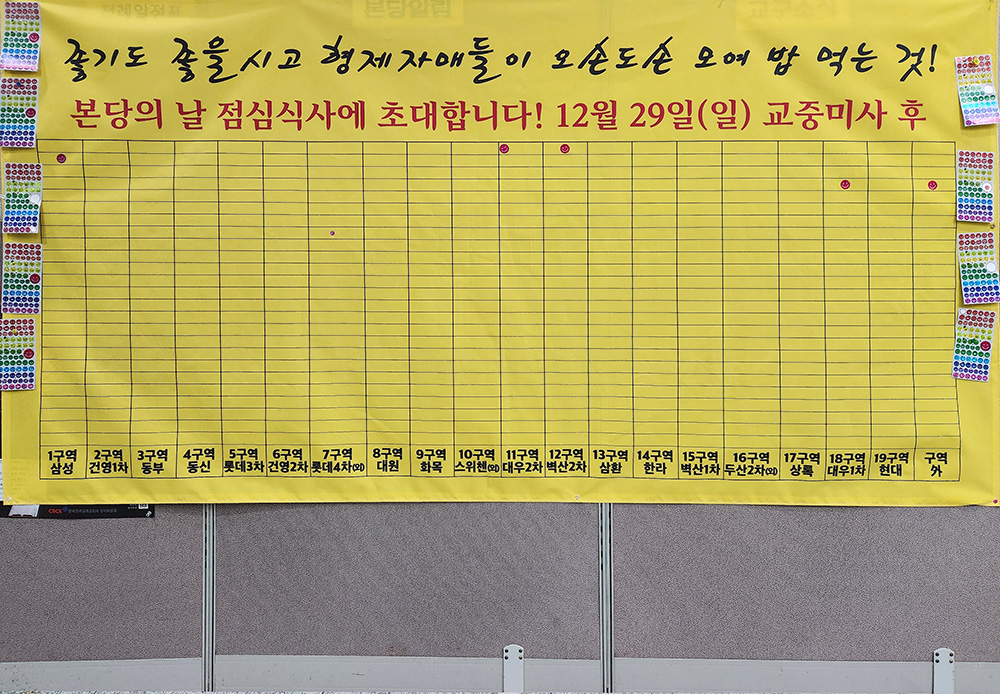 좋기도 좋을시고 형제자매들이 오손도손 모여 밥 먹는 것!
본당의 날 점심식사에 초대합니다! 12월 29일(일) 교중미사 후
1구역 2구역 3구역 4구역 5구역 6구역 7구역 8구역 9구역 10구역 11구역 12구역 13구역 14구역 15구역 16구역 17구역 18구역 19구역 구역
삼성 건영1차 동부 동신 롯데3차 건영2차 롯데4차(외) 대원 화목 스위첸(외) 대우2차 벽산2차 삼환 한라 벽산1차 두산2차(외) 상록 대우1차 현대 外
CBCK